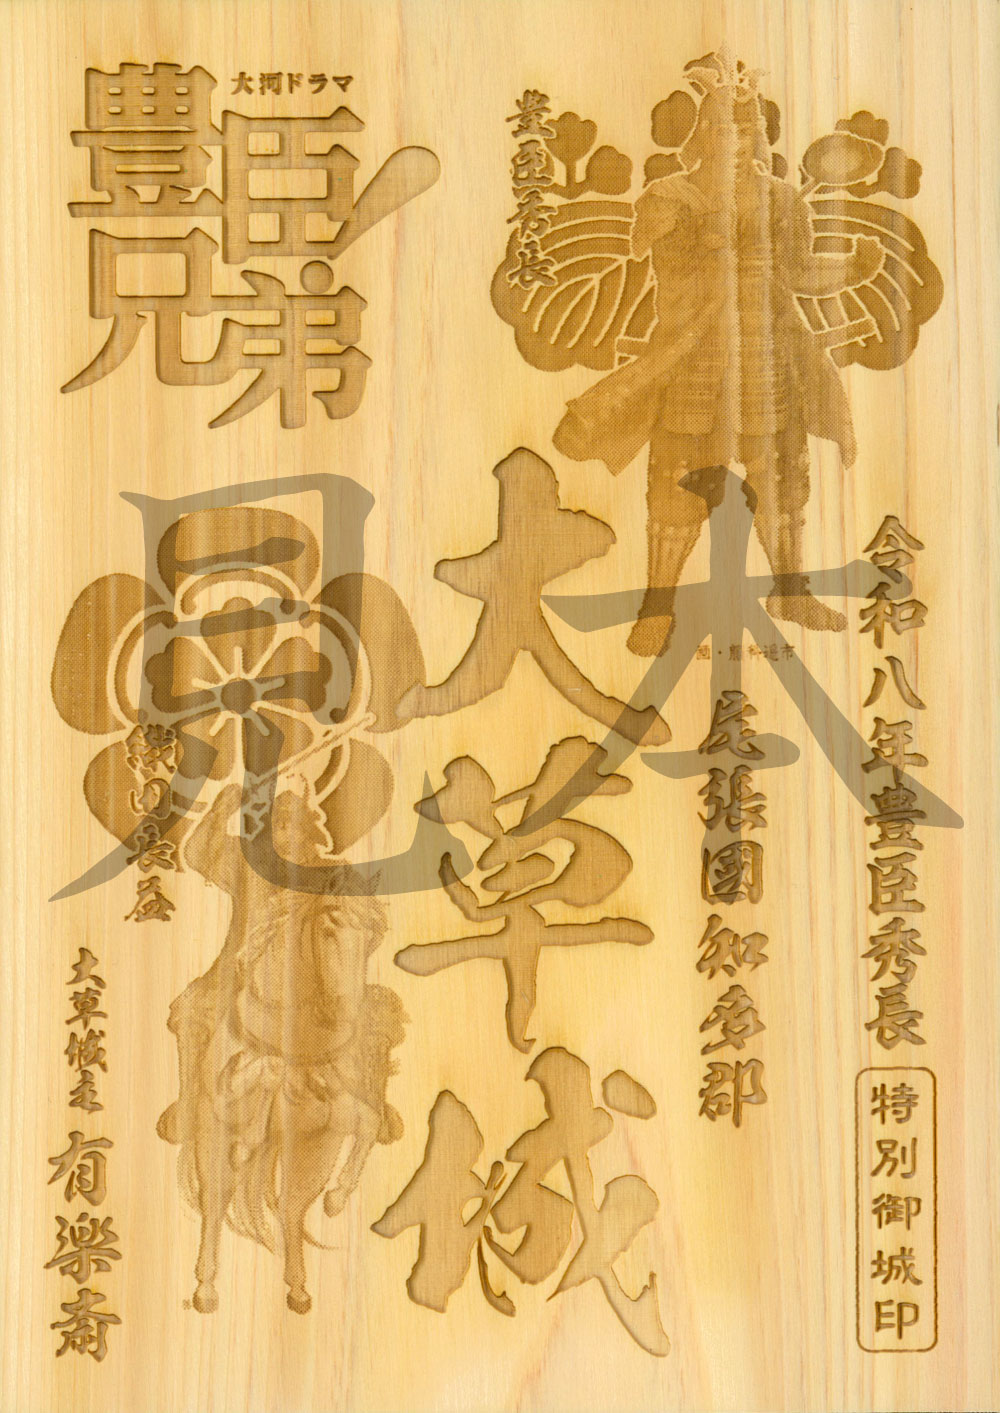 大河ドラマ
豊臣兄弟!
豊臣秀長
令和八年豊臣秀長
特別御城印
尾張國知多郡
大草城
織田長益
大草城主
有楽斎
見本